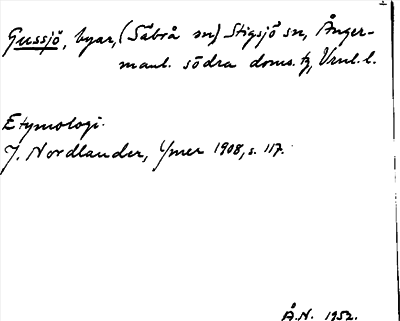 Gussjö, byar, (Säbrå sn) Stigsjö sn, Ånger-
manl. södra doms. tg, Vnl. l.
Etymologi.
J. Nordlander, Ymer 1908, s. 117.
Å.N. 1952.